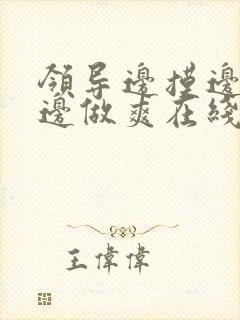 領导邊摸邊
邊做爽在綫
王偉偉